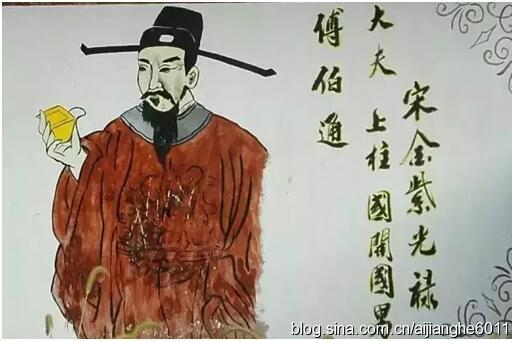 宋金紫光禄
大夫 上柱國開國男
傅伯通
blog.sina.com.cn/aijianghe6011